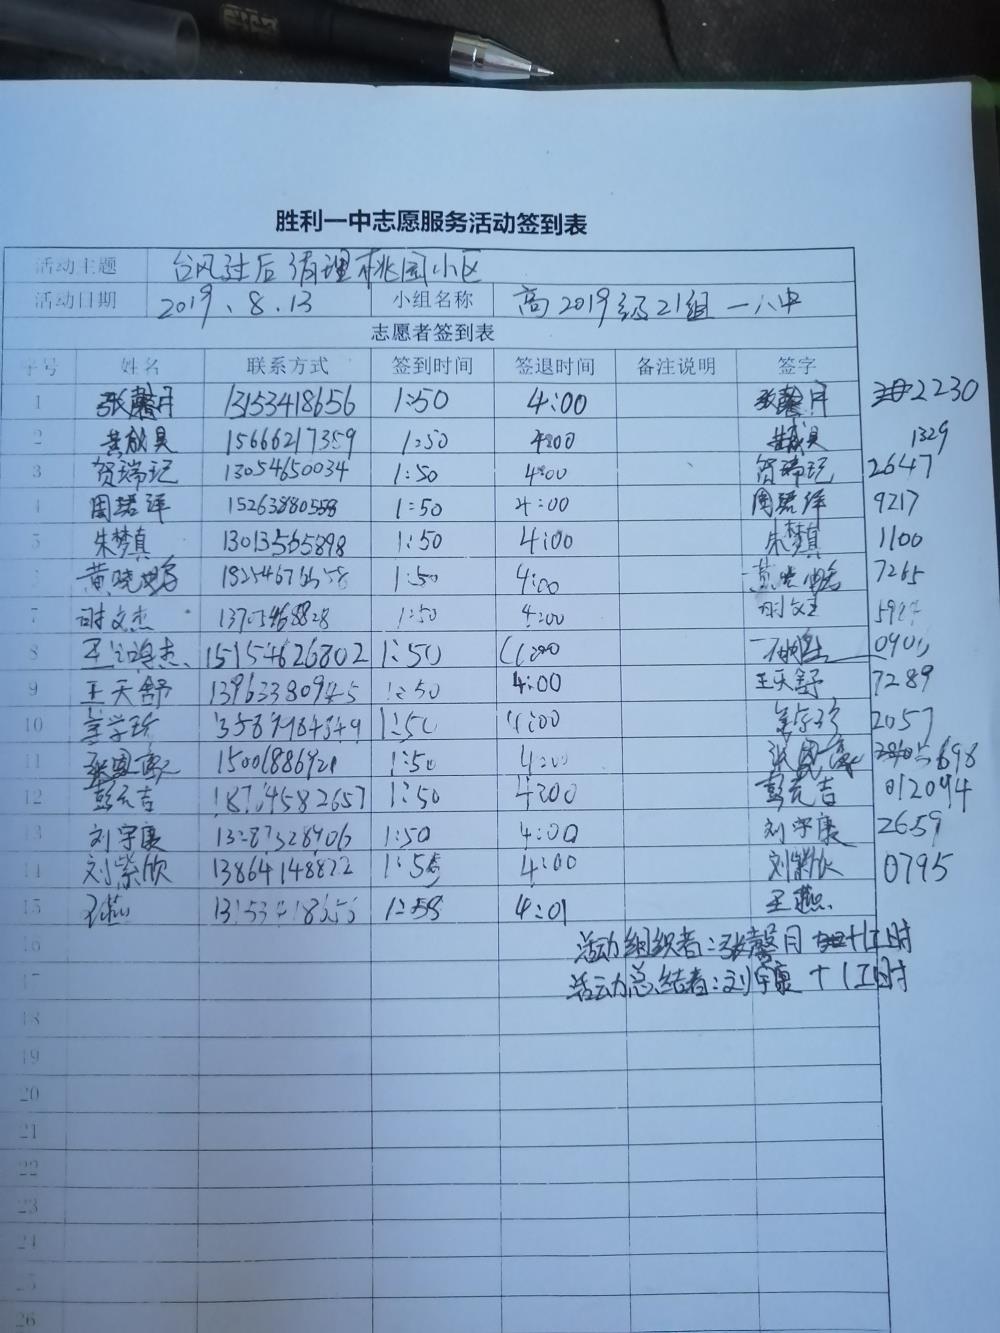 胜利一中志愿服务活动签到表
活动主题 台风过后清理桃园小区
活动日期 2019.8.13 小组名称 高2019级21组一八中
志愿者签到表
序号 姓名 联系方式 签到时间 签退时间 备注说明 签字
1 张馨月 13153418656 1:50 4:00 张馨月 2230
2 15666217359 1:50 4:00 1329
3 贺瑞 13054650034 1:50 4:00 贺瑞 2647
4 周珺洋 15263880558 1:50 4:00 周珺洋 9217
5 朱梦真 13013565898 1:50 4:00 朱梦真 1100
黄晓 1:50 4:00 黄晓 7265
7 时文杰 13705468828 1:50 4:00 时文
8 王 杰 15154626802 1:50
9 王天舒 1:50 4:00 王天舒 7289
10 1:50 4:00 2057
11 张 1:50 4:00 张 5698
12 彭克吉 18704582657 1:50 4:00 彭克吉 012094
13 刘宇康 1:50 4:00 刘宇康 2659
14 刘紫欣 13864148822 1:50 4:00 刘紫欣 0795
15 4:01 王燕
16 活动组织者:张馨月 +1工时
17 活动总结者:刘宇康 +1工时
18
19
20
21
22
23
24
25
26